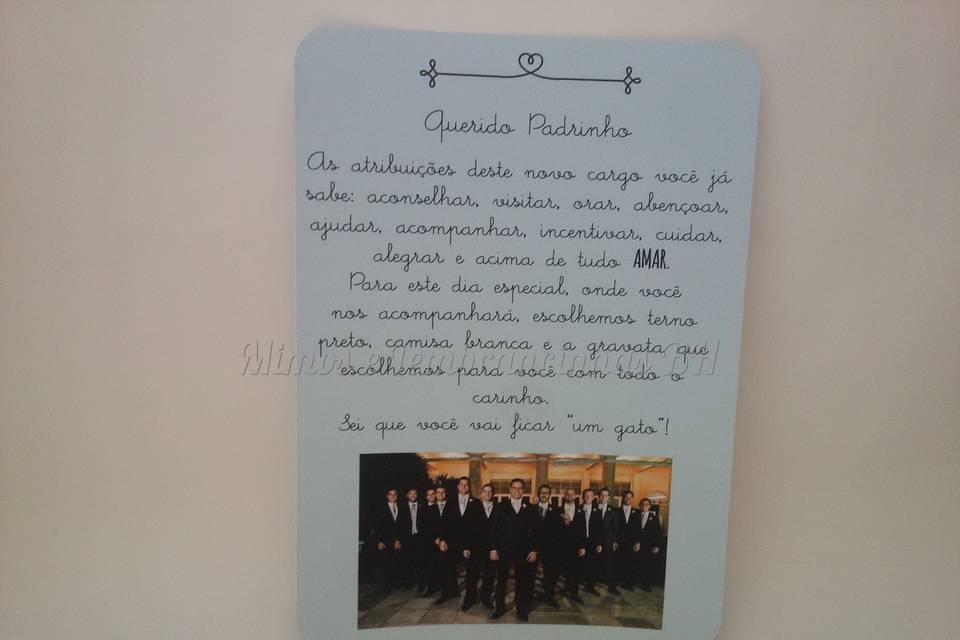 Querido Padrinho
As atribuições deste novo cargo você já
sabe: aconselhar, visitar, orar, abençoar,
ajudar, acompanhar, incentivar, cuidar,
alegrar e acima de tudo AMAR.
Para este dia especial, onde você
nos acompanhará, escolhemos terno
preto, camisa branca e a gravata que
escolhemos para você com todo o
carinho.
Sei que você vai ficar "um gato"!
Mimos e lembrancinhas BH